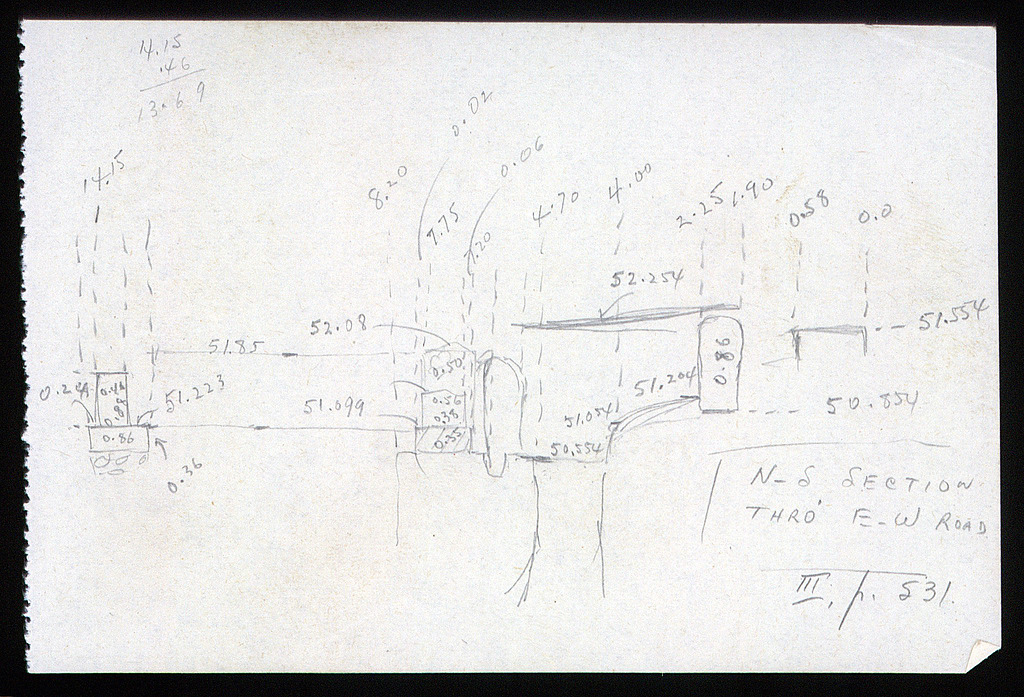 14.15
.46
13.69
14.15
8.20
0.02
7.75
0.06
7.20
4.70
4.00
2.25
1.90
0.58
0.0
52.254
52.08
51.554
51.85
0.50
0.86
51.204
51.223
0.56
51.099
0.38
51.054
50.854
0.86
0.35
50.554
0.36
N-S SECTION
THRO' E-W ROAD
III, p. 531.